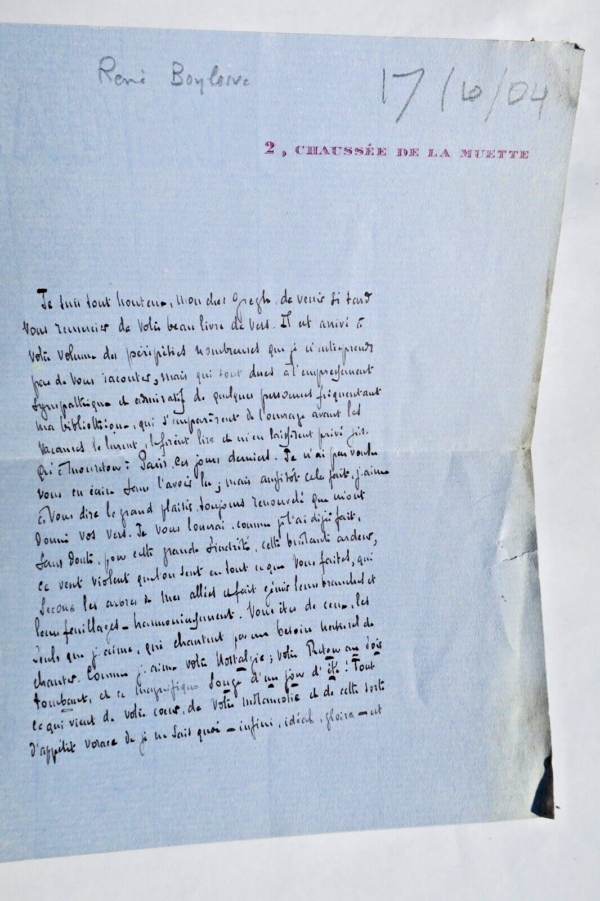 René Boylesve
17/10/04
2, CHAUSSÉE DE LA MUETTE
Je suis tout honteux, mon cher Gregh, de venir si tard
vous remercier de votre beau livre de vers. Il est arrivé à
votre volume des péripéties nombreuses que je n'entreprends
pas de vous raconter, mais qui sont dues à l'empressement
sympathique et admiratif de quelques personnes fréquentant
ma bibliothèque, qui s'emparèrent de l'ouvrage avant les
vacances le lurent, le firent lire et m'en laissèrent privé jus-
qu'à mon retour à Paris ces jours derniers. Je n'ai pas voulu
vous en écrire sans l'avoir lu ; mais aussitôt cela fait, j'aime
à vous dire le grand plaisir toujours renouvelé que m'ont
donné vos vers. Je vous louerai, comme je l'ai déjà fait,
sans doute, pour cette grande sincérité, cette brûlante ardeur,
ce vent violent que l'on sent en tout ce que vous faites, qui
secoue les arbres de vos allées et fait gémir leurs branches et
leurs feuillages – harmonieusement. Vous êtes de ceux, les
seuls que j'aime, qui chantent par un besoin naturel de
chanter. Comme j'aime votre Nostalgie ; votre Retour au Soir
tombant, et ce magnifique Songe d'un jour d'été ! Tout
ce qui vient de votre cœur, de votre mélancolie et de cette sorte
d'appétit vorace de je ne sais quoi – infini, idéal, gloire – est